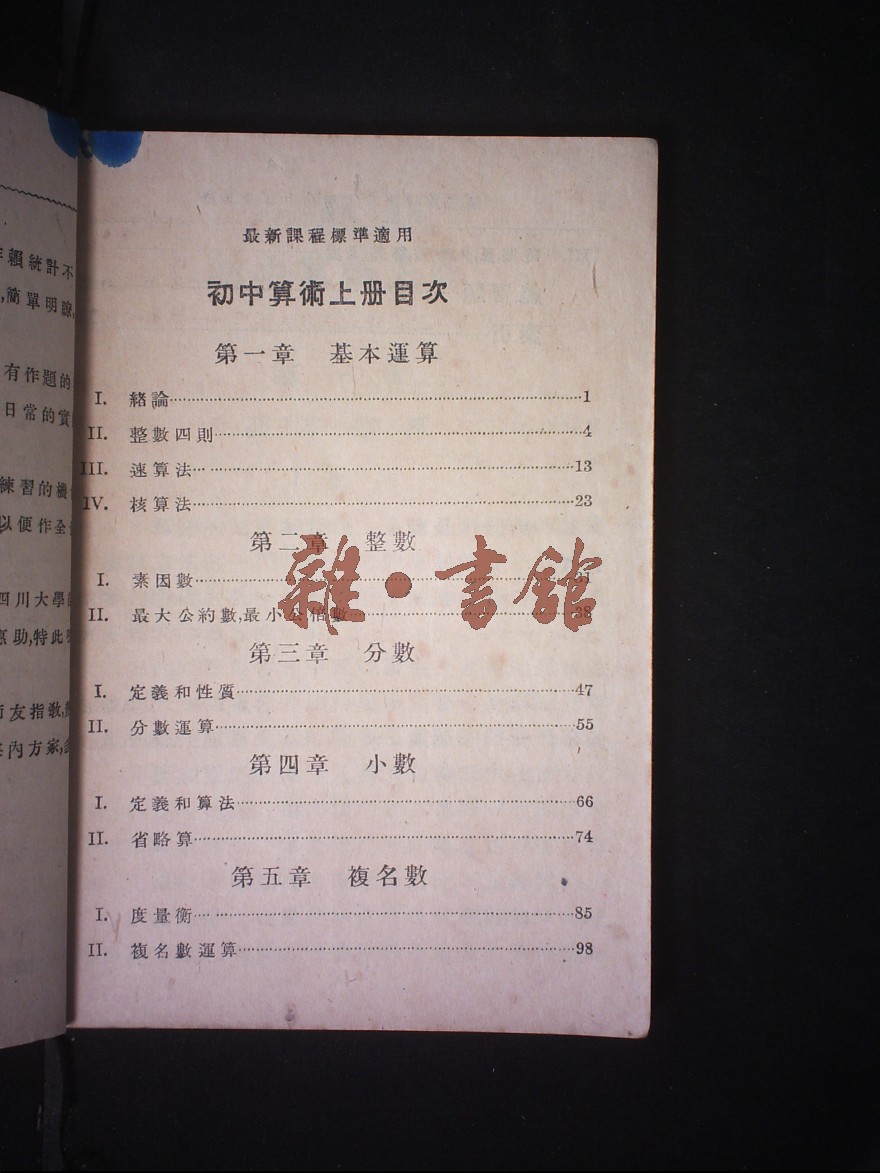 賴統計不
,簡單明瞭,
有作題的
日常的實
練習的機
以便作全
四川大學
惠助,特此
友指教,
內方家,
最新課程標準適用
初中算術上册目次
第一章 基本運算
I. 緒論 1
II. 整數四則 4
III. 速算法 13
IV. 核算法 23
第二章 整數
I. 素因數 31
II. 最大公約數,最小公倍數 38
第三章 分數
I. 定義和性質 47
II. 分數運算 55
第四章 小數
I. 定義和算法 66
II. 省略算 74
第五章 複名數
I. 度量衡 85
II. 複名數運算 98
雜·書館